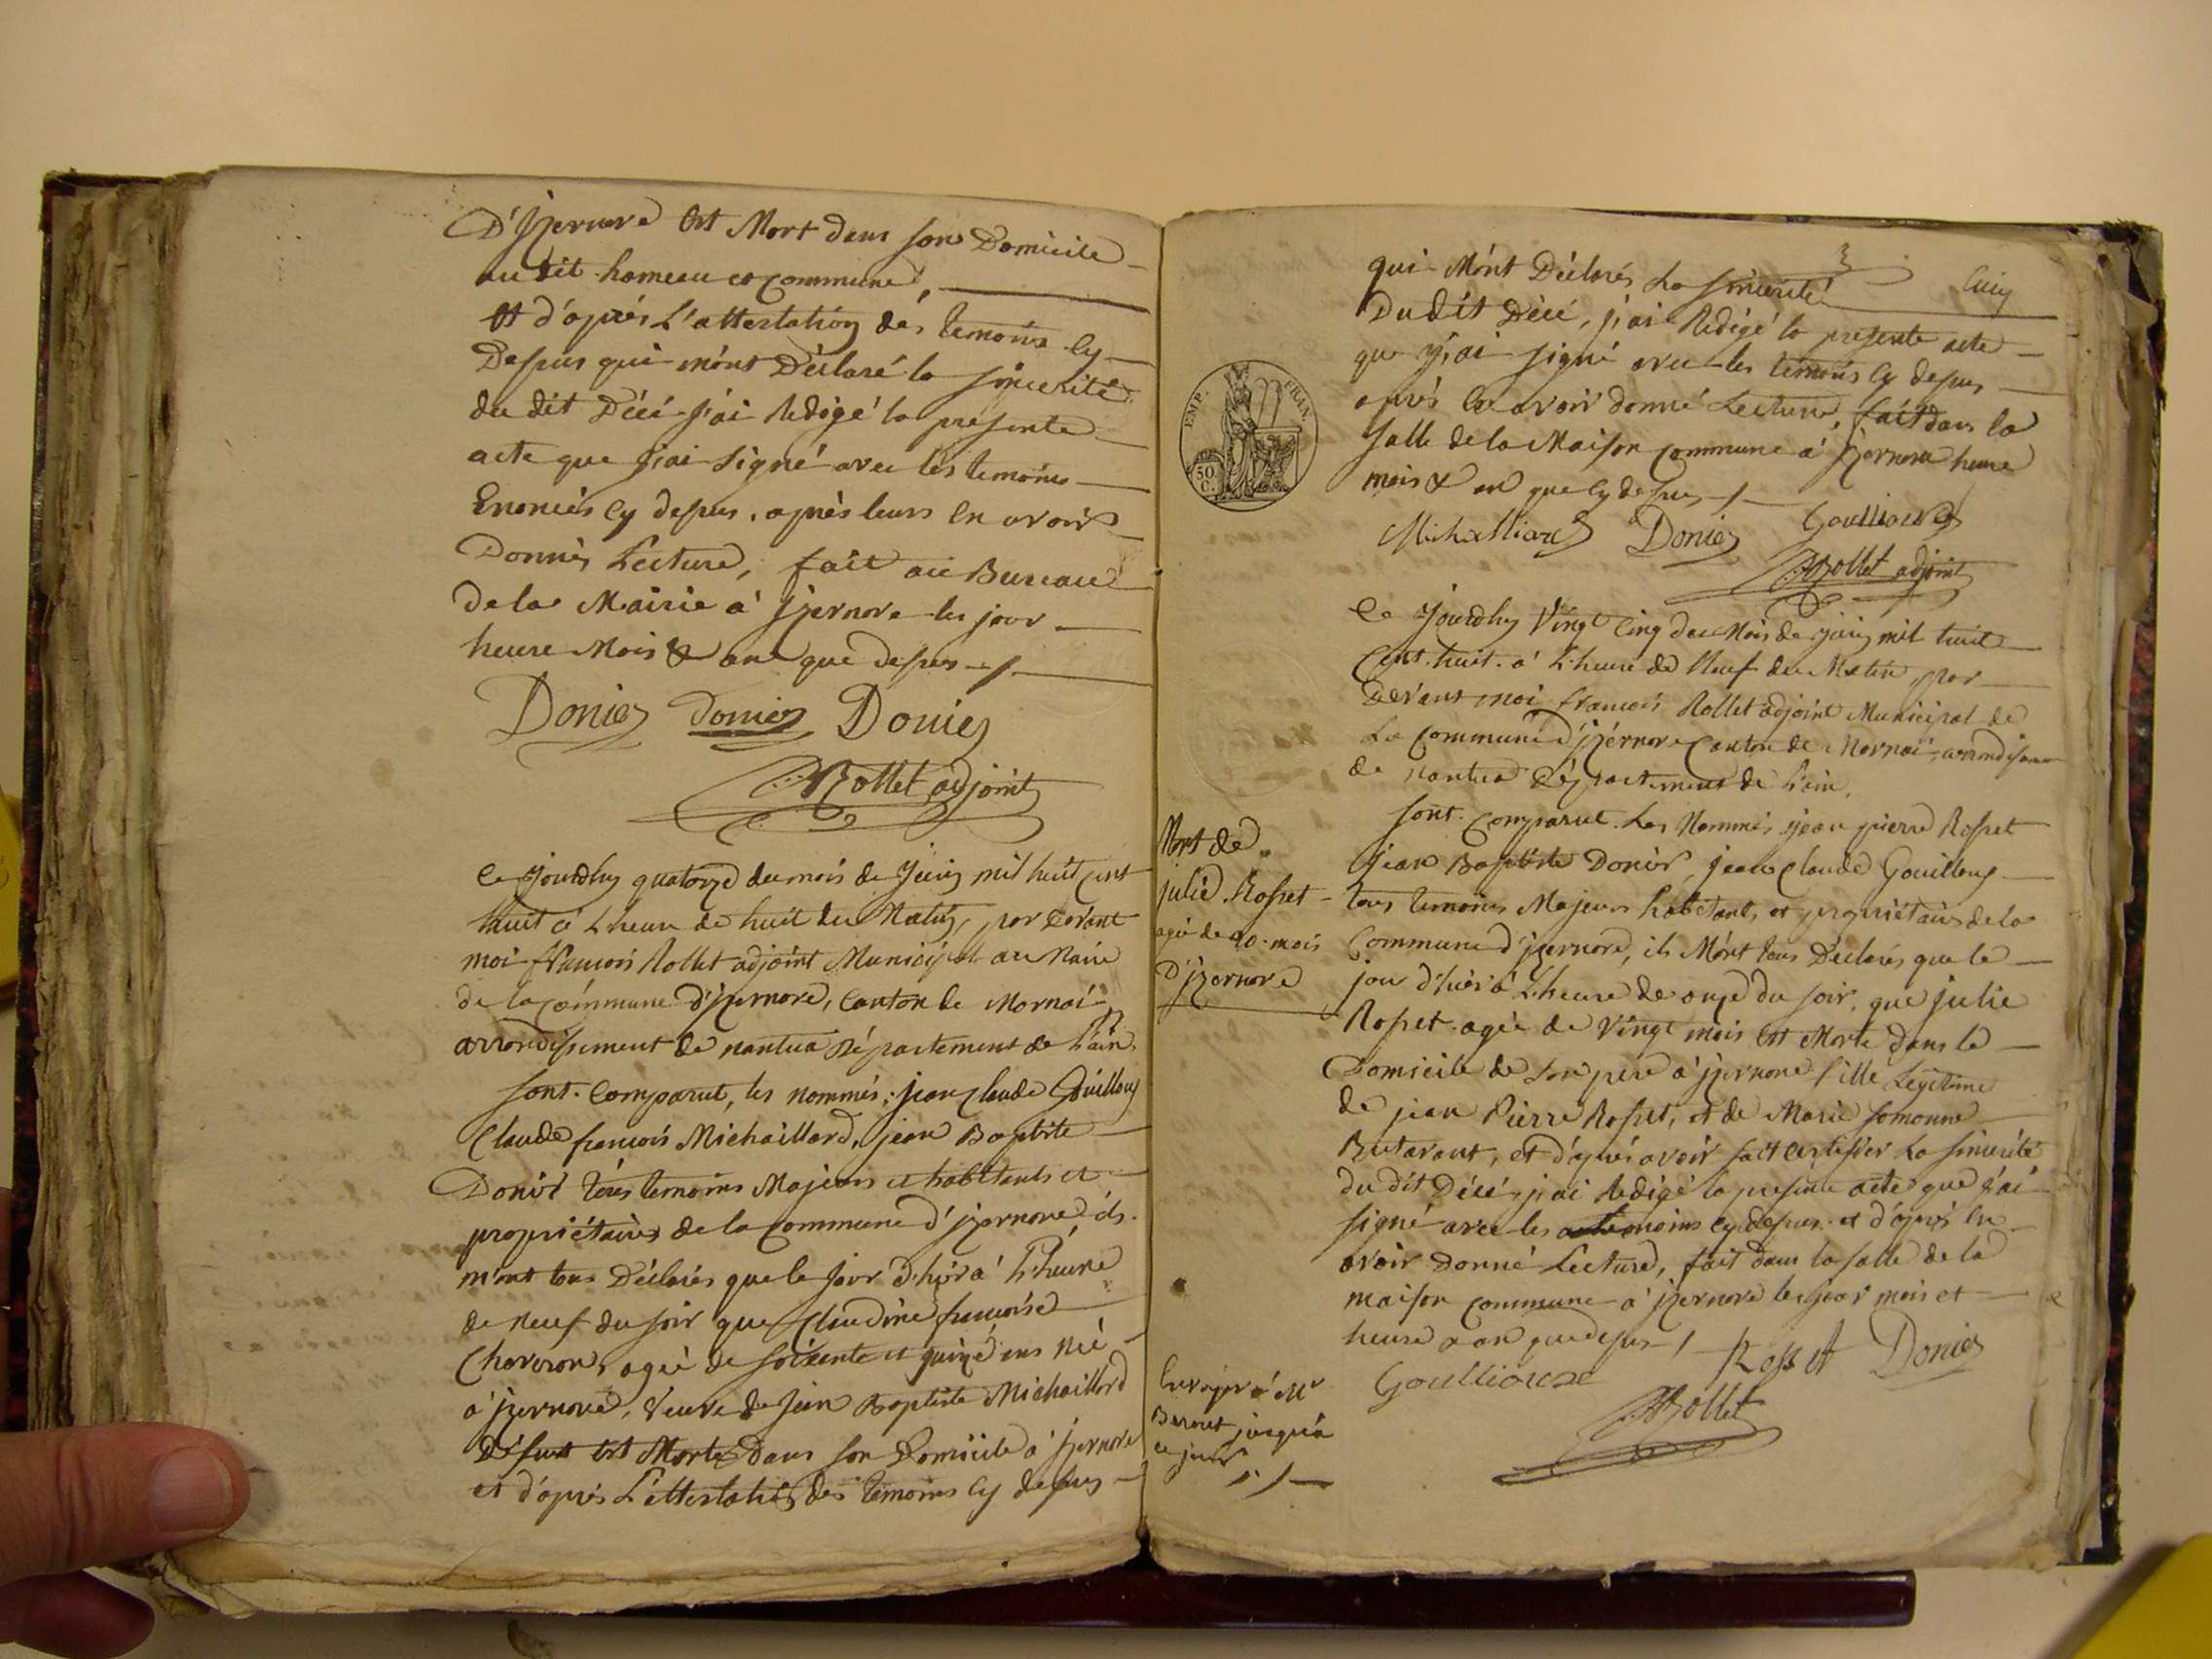 D'Izernore Est Mort dans son Domicile
au dit hameau et Commune,
Et d'après L'attestation des temoins cy
Dessus qui m'ont Déclaré la sincerité
du dit Décé j'ai Redigé la presente
acte que j'ai signé avec les temoins
Enoncés cy dessus, après leurs en avoir
Donnés Lecture, fait au Bureau
de la Mairie a izernore les jour
heure Mois & an que dessus
Donier Donier Donier
Rollet adjoint
Ce jourdhuy quatorze du mois de juin mil huit cent
huit a L'heure de huit du Matin, par devant
moi francois Rollet adjoint Municipal au Maire
de la Commune d'izernore, Canton de Mornai
arrondissement de nantua Département de L'ain,
sont Comparut, les nommés, jean Claude Gouilloux
Claude francois Michaillard, jean Baptiste
Donier tous temoins Majeurs et habitants et
propriétaires de la Commune d'izernore ils
m'ont tous Déclarés que le jour d'hier a L'heure
de neuf du soir que Claudine francoise
agée de soixente et quinze ans née
a izernore, Veuve de jean Baptiste Michaillard
Défunt est Morte dans son Domicile a izernore
et d'après L'attestation des temoins cy dessus
qui M'ont Déclarés la sincerité
Du dit Décé, j'ai Redigé la presente acte
que j'ai signé avec les temoins cy dessus
après en avoir donné Lecture, fait dans la
salle de la Maison Commune a izernore heure
mois & an que cy dessus
Michalliard Donier Goullioux
Rollet adjoint
EMP. FRAN.
50 C.
Ce jourdhuy Vingt Cinq du Mois de juin mil huit
Cent huit a L'heure de Neuf du Matin, par
devant moi francois Rollet adjoint Municipal de
La Commune d'izernore Canton de Mornai, arrondissement
de nantua Département de L'ain,
sont Comparut Les Nommés jean pierre Rosset
jean Baptiste Donier, jean Claude Gouilloux
tous temoins Majeurs habitant, et propriétaires de la
Commune d'izernore, ils M'ont tous Déclarés que le
jour d'hier a L'heure de onze du soir, que julie
Rosset agée de Vingt mois est Morte dans le
Domicile de son pere a izernore fille Legitime
de jean Pierre Rosset, et de Marie
Butavant, et d'après avoir fait certiffier La sincerité
du dit Décé, j'ai Redigé la presente acte que j'ai
signé avec les temoins cy dessus et d'après en
avoir Donné Lecture, fait dans la salle de la
maison Commune a izernore les jour mois et
heure & an que dessus
Rosset Donier
Goullioux
Rollet
Mort de
julie Rosset
agée de 20 mois
D'izernore
Envoyer a Mr
jusqu'a
ce jour